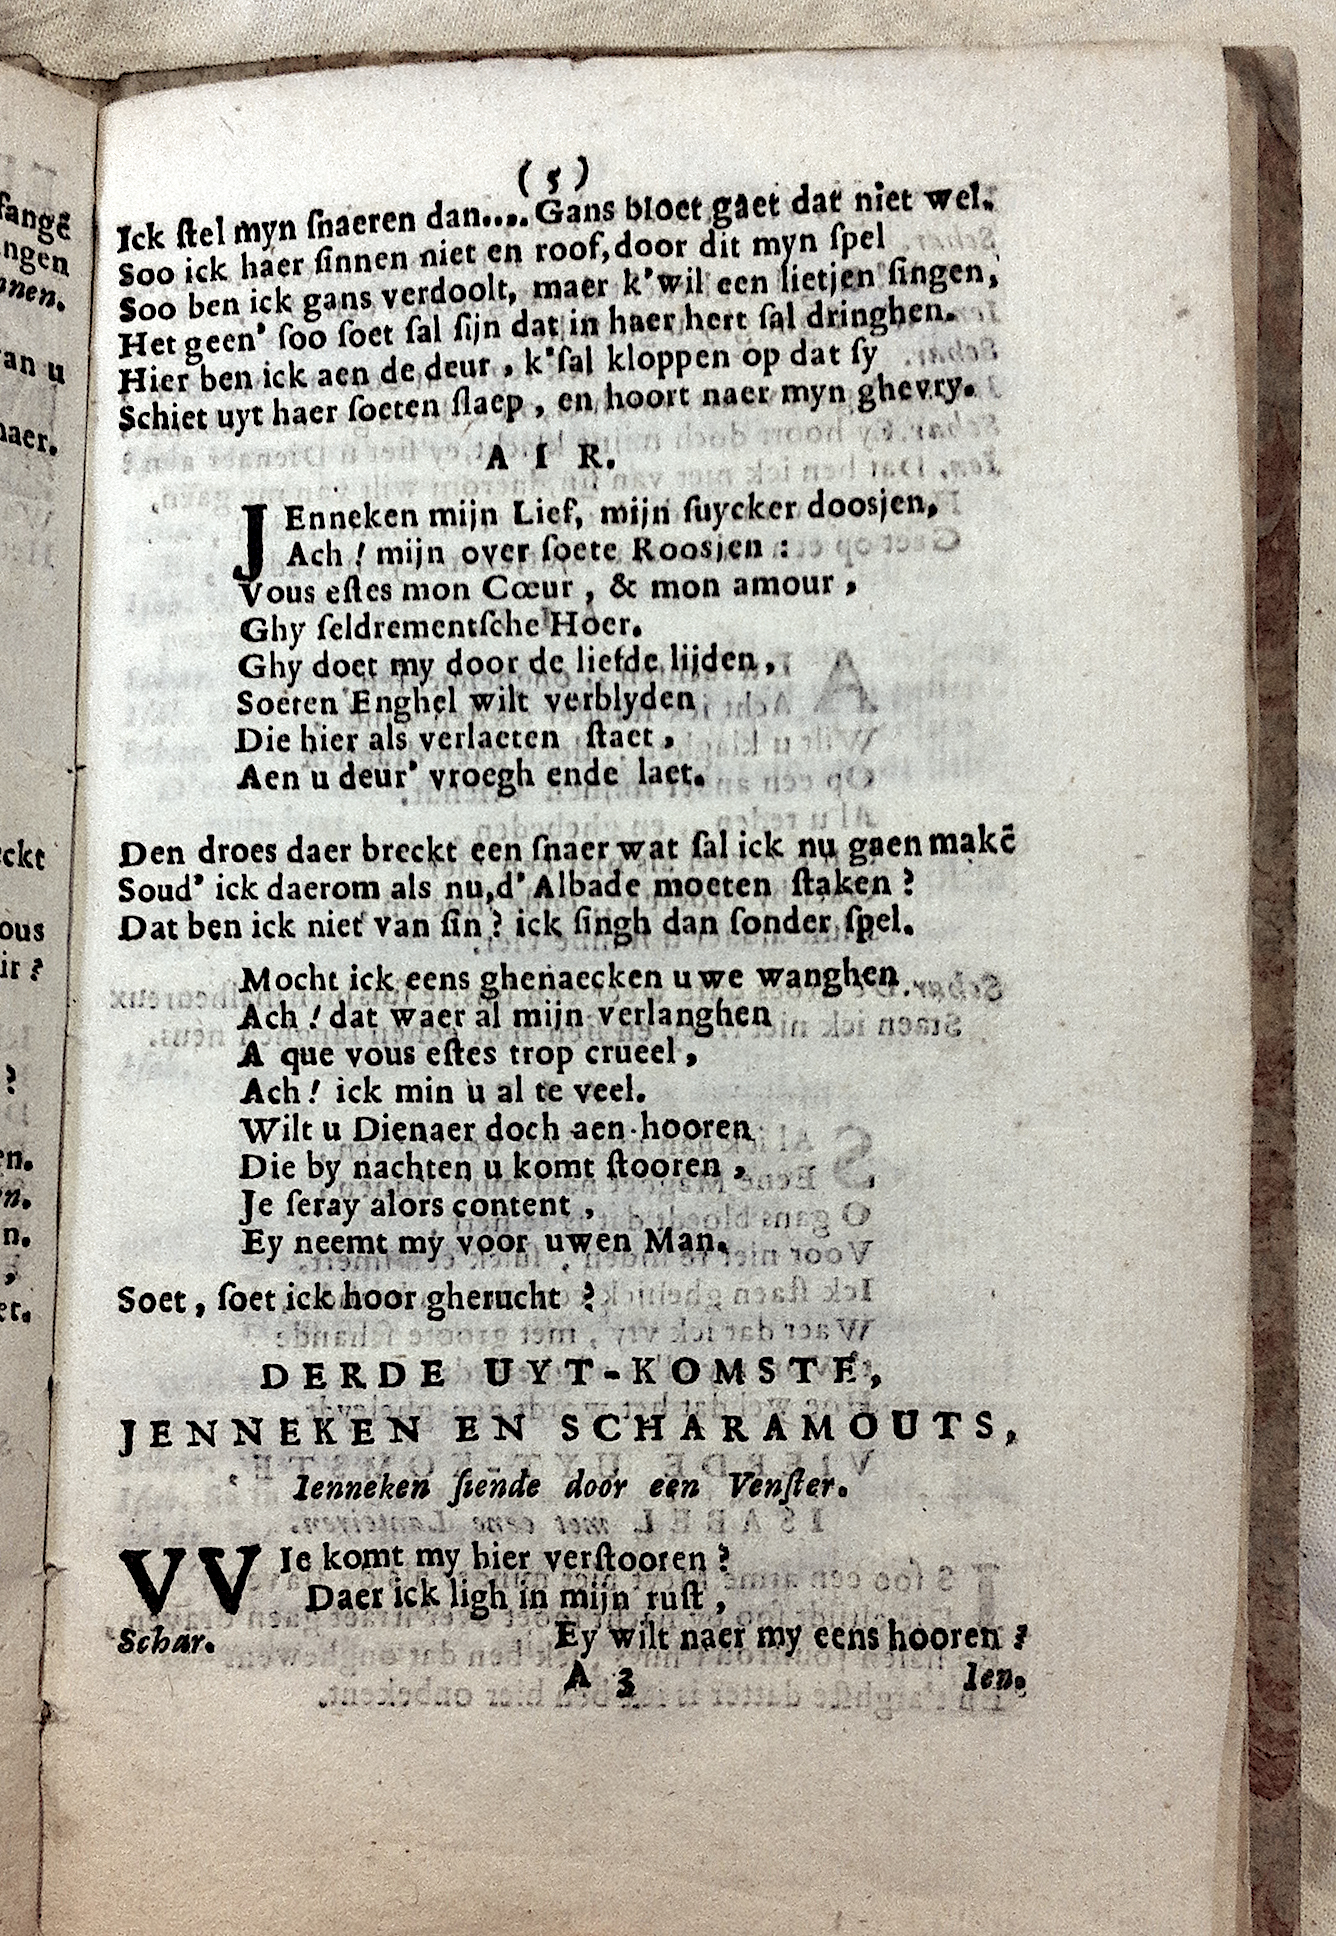 (5)
Ick ſtel myn ſnaeren dan.... Gans bloet gaet dat niet wel.
Soo ick haer ſinnen niet en roof, door dit myn ſpel
Soo ben ick gans verdoolt, maer k'wil een lietjen ſingen,
Het geen' ſoo ſoet ſal ſijn dat in haer hert ſal dringhen.
Hier ben ick aen de deur, k'ſal kloppen op dat ſy
Schiet uyt haer ſoeten ſlaep, en hoort naer myn ghevry.
AIR.
JEnneken mijn Lief, mijn ſuycker doosjen,
Ach! mijn over ſoete Roosjen:
Vous eſtes mon Cœur, & mon amour,
Ghy ſeldrementſche Hoer.
Ghy doet my door de liefde lijden,
Soeten Enghel wilt verblyden
Die hier als verlaeten ſtaet,
Aen u deur' vroegh ende laet.
Den droes daer breckt een ſnaer wat ſal ick nu gaen makē
Soud' ick daerom als nu, d' Albade moeten ſtaken?
Dat ben ick niet van ſin? ick ſingh dan ſonder ſpel.
Mocht ick eens ghenaecken uwe wanghen
Ach! dat waer al mijn verlanghen
A que vous eſtes trop crueel,
Ach! ick min u al te veel.
Wilt u Dienaer doch aen-hooren
Die by nachten u komt ſtooren,
Je ſeray alors content,
Ey neemt my voor uwen Man.
Soet, ſoet ick hoor gherucht?
DERDE UYT-KOMSTE,
JENNEKEN EN SCHARAMOUTS,
Ienneken ſiende door een Venſter.
VVIe komt my hier verſtooren?
Daer ick ligh in mijn ruſt,
Schar. Ey wilt naer my eens hooren?
A 3 Ien.